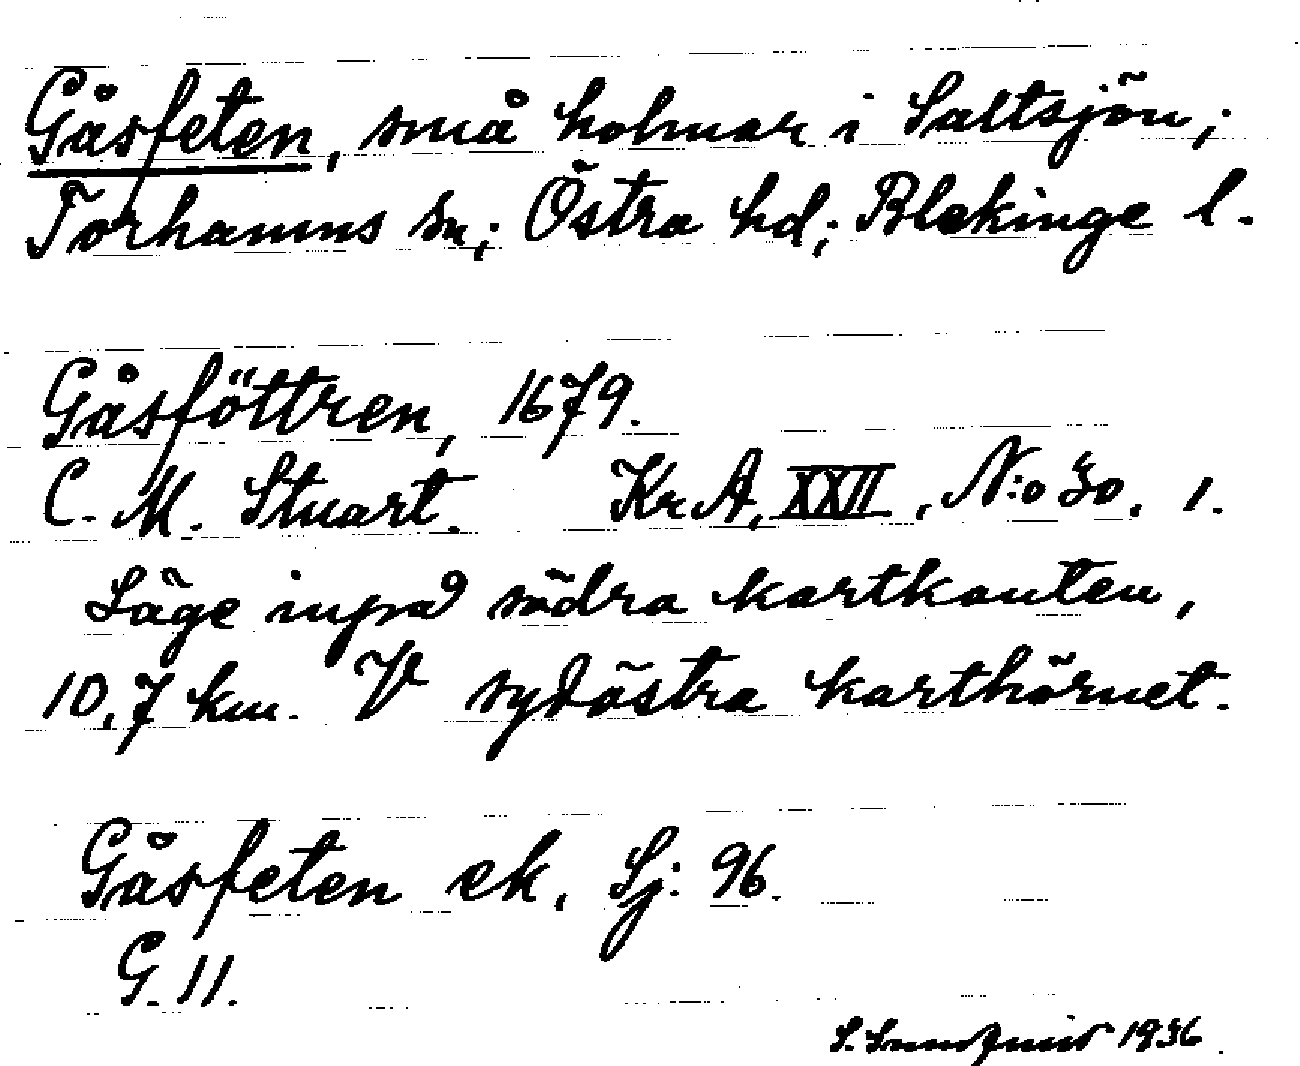 Gåsfeten, små holmar i Saltsjön;
Torhamns sn; Östra hd; Blekinge l.
Gåsföttren, 1679.
C. M. Stuart. Kr A, XXII, N:o 30. 1.
Läge inpå södra kartkanten,
10,7 km. V sydöstra karthörnet.
Gåsfeten ek. Sj: 96.
G. 11.
S. 1936.